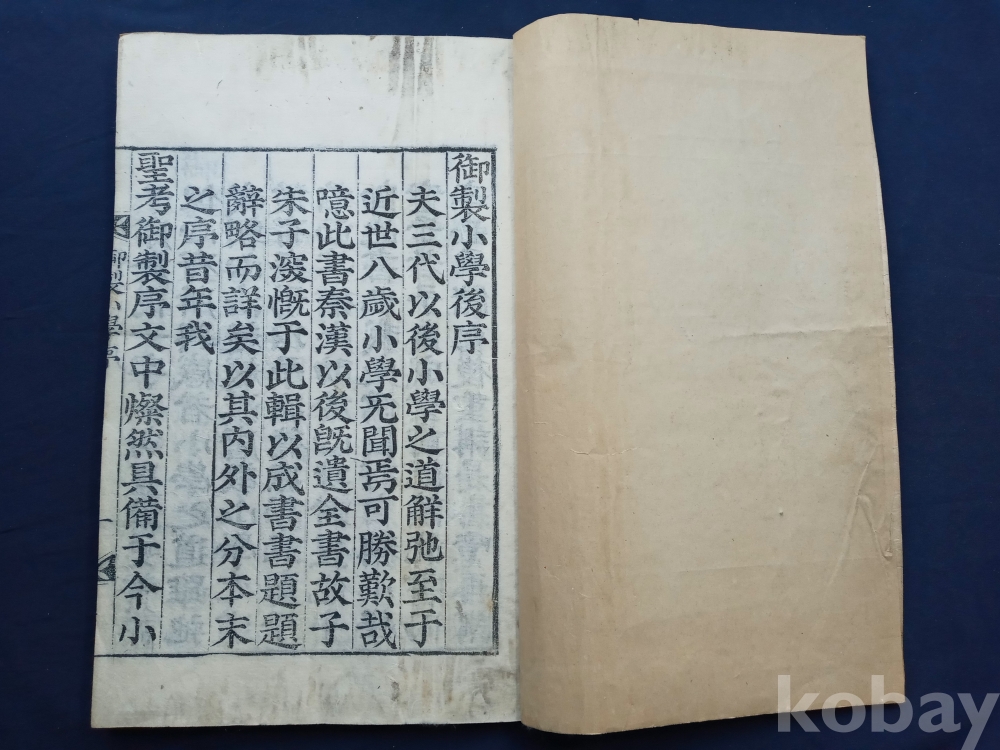 御製小學後序
夫三代以後小學之道解弛至于
近世八歲小學无聞焉可勝歎哉
噫此書秦漢以後旣遺全書故子
朱子深慨于此輯以成書書題題
辭略而詳矣以其內外之分本末
之序昔年我
聖考御製序文中燦然具備于今小
御製小學序
一
kobay